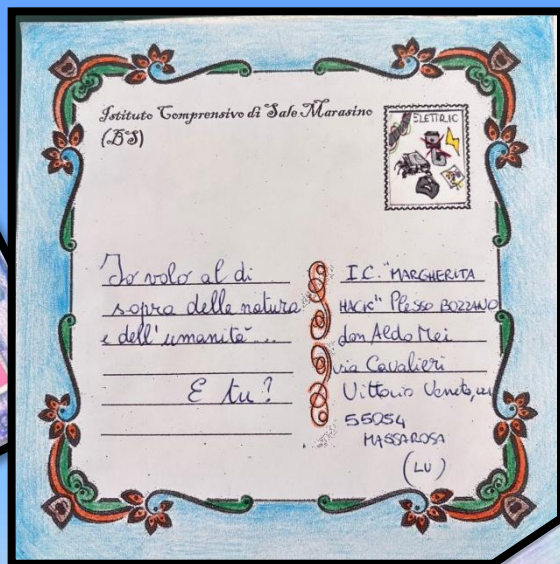 Istituto Comprensivo di Sale Marasino
(BS)
ELETTRIC
Io volo al di
sopra della natura
e dell'umanità...
E tu?
I.C. "MARGHERITA
HACK" PLESSO BOZZANO
don Aldo Mei
via Cavalieri
Vittorio Veneto,
55054
MASSAROSA
(LU)